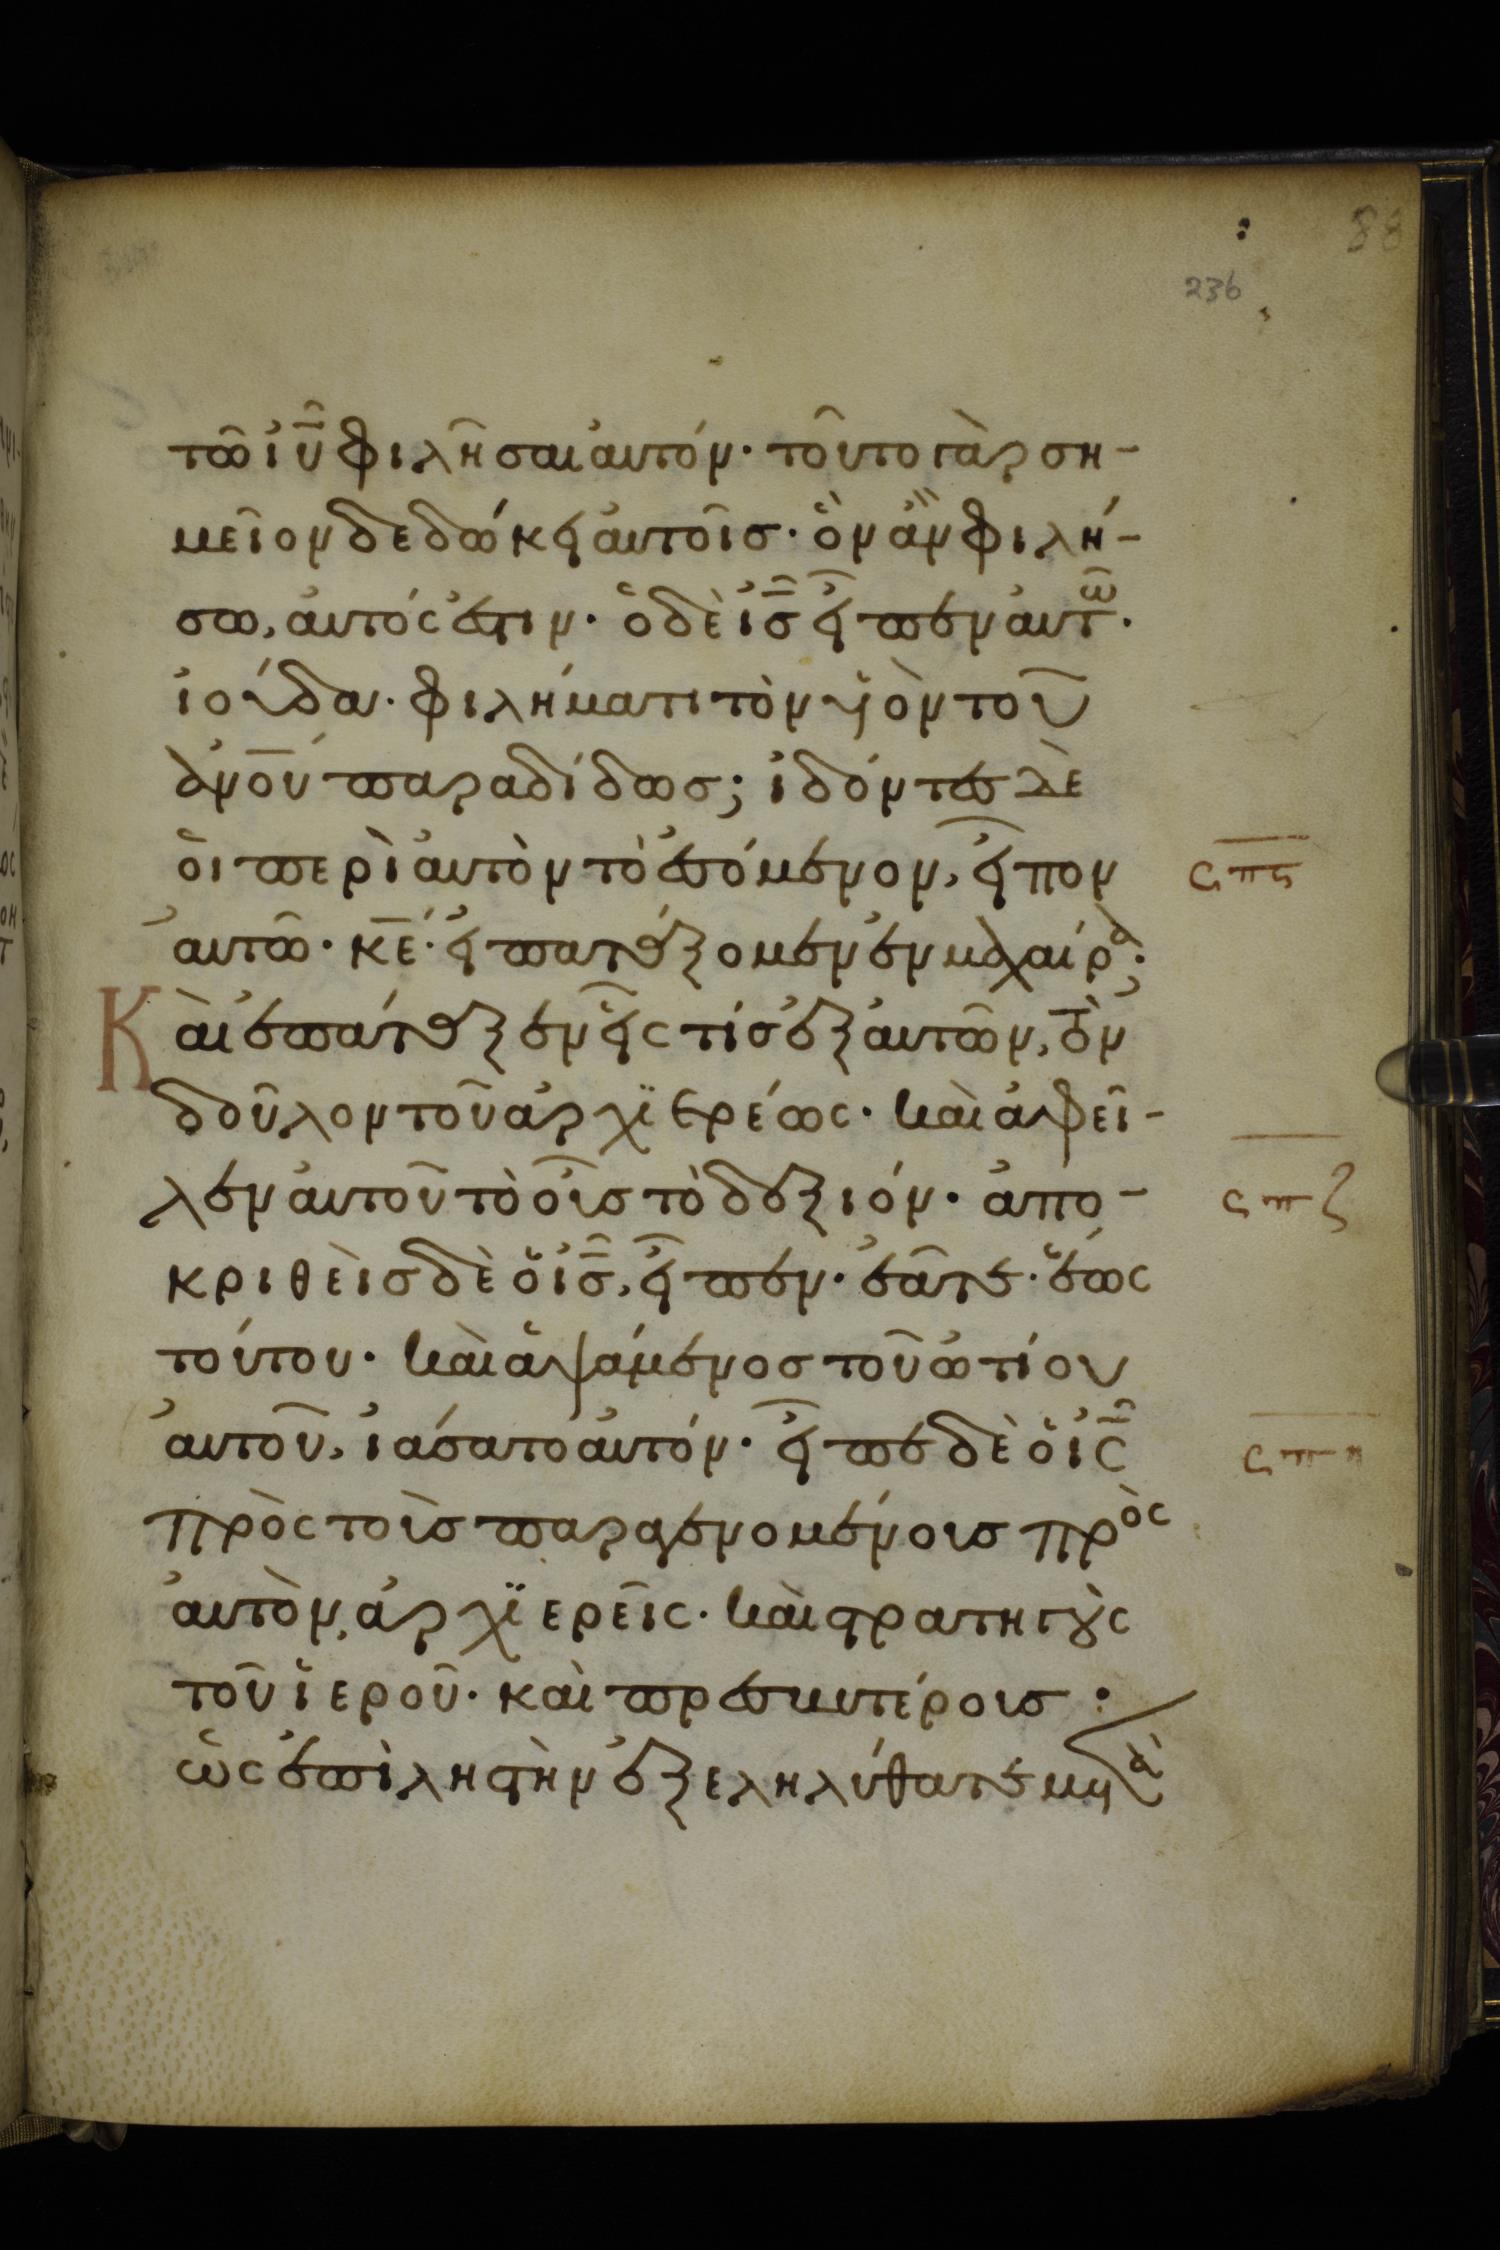 88
236
τῶ ἰῦ φιλῆσαι ἀυτόν· τοῦτο γὰρ ση-
μεῖον δεδώκει ἀυτοῖσ· ὃν ἂν φιλή-
σω, ἀυτός ἐστιν· ὁ δὲ ἰσ̅ εἶπεν ἀυτῶ·
ἰούδα· φιλήματι τὸν υἱὸν τοῦ
ἀν̅ου παραδίδωσ; ἰδόντεσ δὲ
ὁι περὶ ἀυτὸν τὸ ἐσόμενον, εἶπον
ἀυτῶ· κ̅ε· εἰ πατάξομεν ἐν μαχαίρα·
Κ
ὰι ἐπάταξεν εἷς τίσ ἐξ ἀυτῶν, τὸν
δοῦλον τοῦ ἀρχϊερέως· κὰι ἀφεῖ-
λεν ἀυτοῦ τὸ οὖσ τὸ δεξιόν· ἀπο-
κριθεὶσ δὲ ὁ ἰσ̅, εἶπεν· ἐᾶτε· ἕως
τούτου· κὰι ἁψάμενοσ τοῦ ὠτίου
ἀυτοῦ, ἰάσατο ἀυτόν· εἶπε δὲ ὁ ἰς̅
πρὸς τοὺσ παραγενομένουσ πρὸς
ἀυτὸν, ἀρχϊερεῖς· κὰι στρατηγοὺς
τοῦ ἱεροῦ· καὶ πρεσβυτέρουσ :
ὡς ἐπὶ ληστὴν ἐξεληλύθατε μετὰ
ϛπϛ
ϛπζ
ϛπη